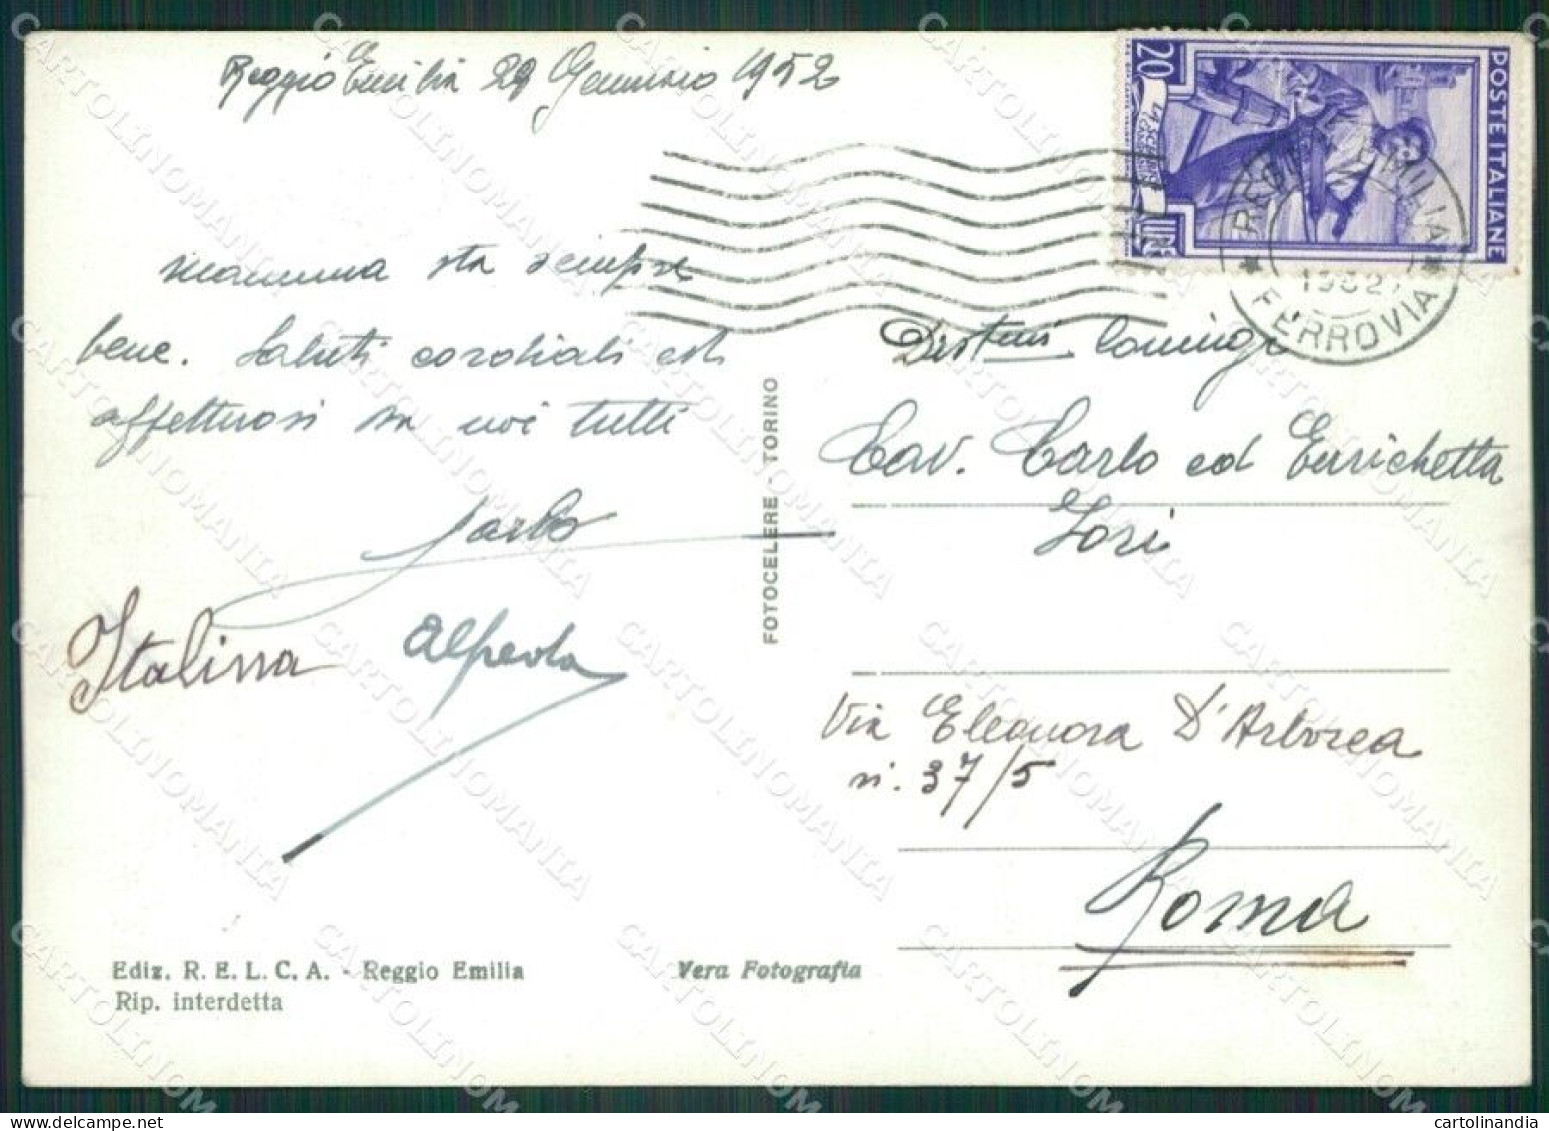 Reggio Emilia 29 Gennaio 1952
POSTE ITALIANE
20
REGGIO EMILIA
1952
FERROVIA
mamma sta sempre
bene. Saluti cordiali ed
affettuosi a voi tutti
Carlo
Italina
Distmi Coniugi
Cav. Carlo ed Enrichetta
Iori
Via Eleonora D'Arborea
n. 37/5
Roma
FOTOCELERE - TORINO
Ediz. R. E. L. C. A. - Reggio Emilia
Rip. interdetta
Vera Fotografia
CARTOLINOMANIA
cartolinandia